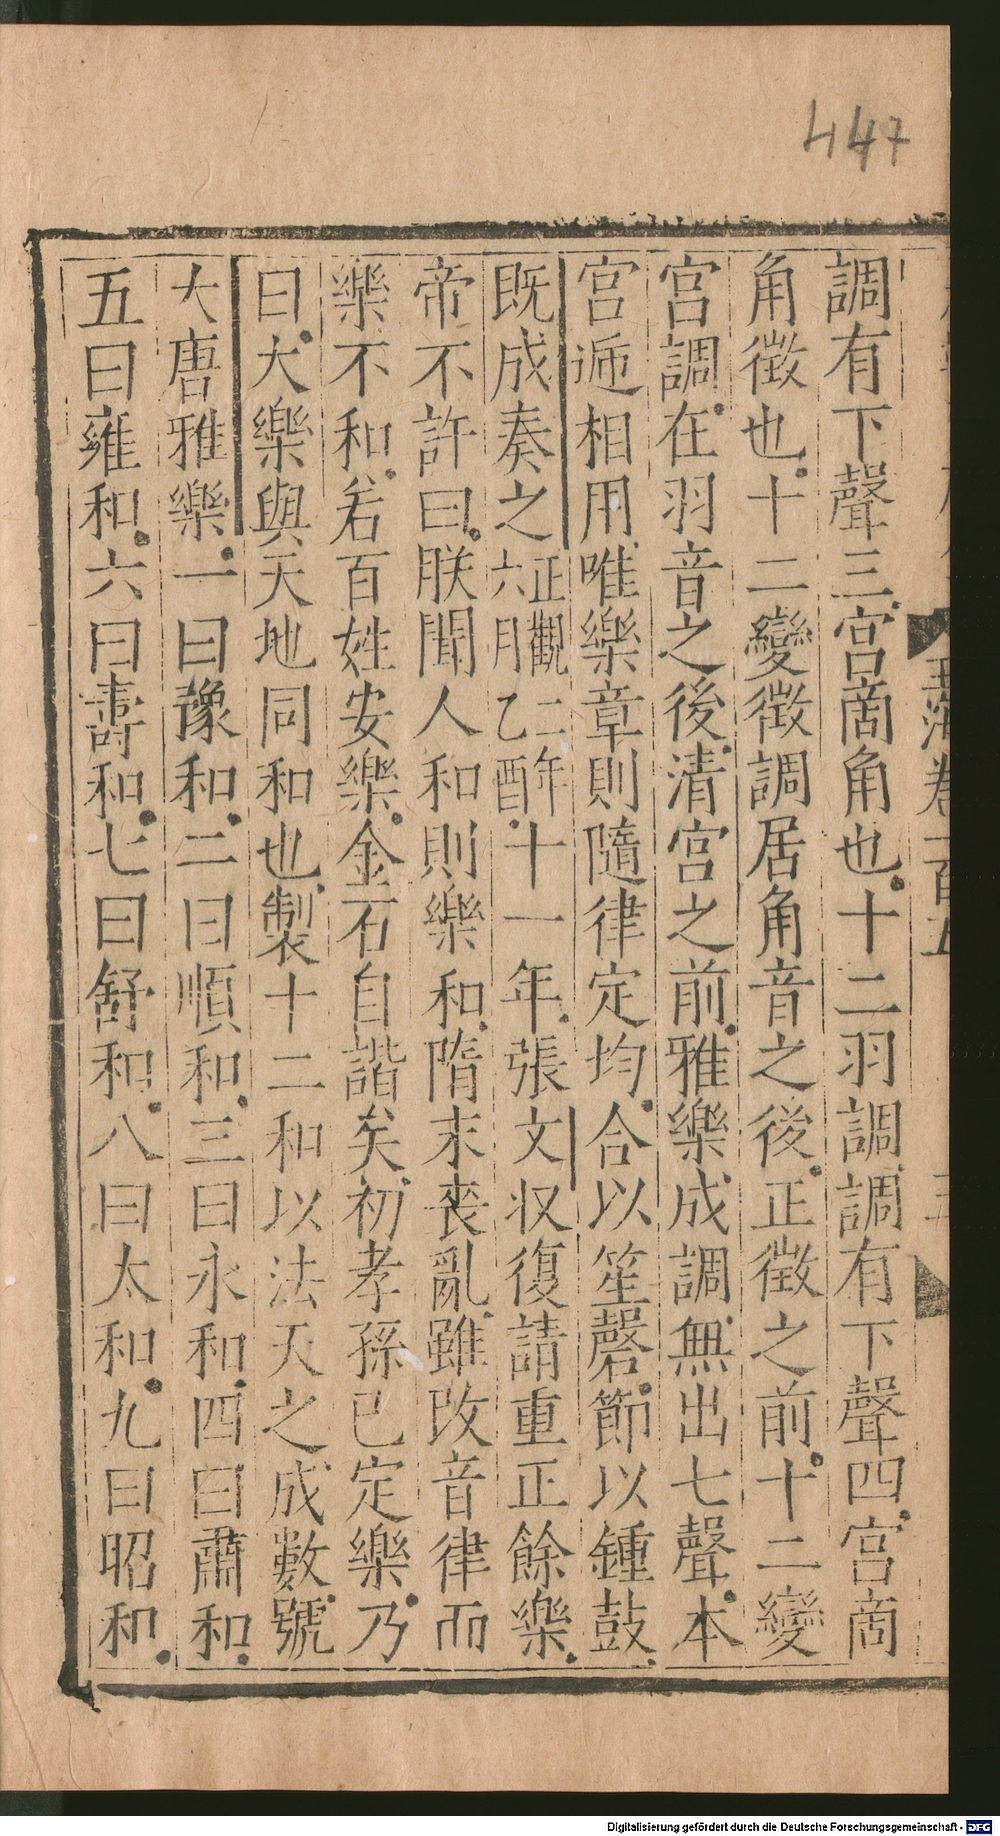 447
調有下聲三宮商角也十二羽調調有下聲四宮商
角徵也十二變徵調居角音之後正徵之前十二變
宮調在羽音之後清宮之前雅樂成調無出七聲本
宮遞相用唯樂章則隨律定均合以笙磬節以鍾鼓
既成奏之正觀二年六月乙酉十一年張文収復請重正餘樂
帝不許曰朕聞人和則樂和隋末喪亂雖改音律而
樂不和若百姓安樂金石自諧矣初孝孫已定樂乃
曰大樂與天地同和也製十二和以法天之成數號
大唐雅樂一曰豫和二曰順和三曰永和四曰肅和
五曰雍和六曰壽和七曰舒和八曰太和九曰昭和
Digitalisierung gefördert durch die Deutsche Forschungsgemeinschaft - DFG